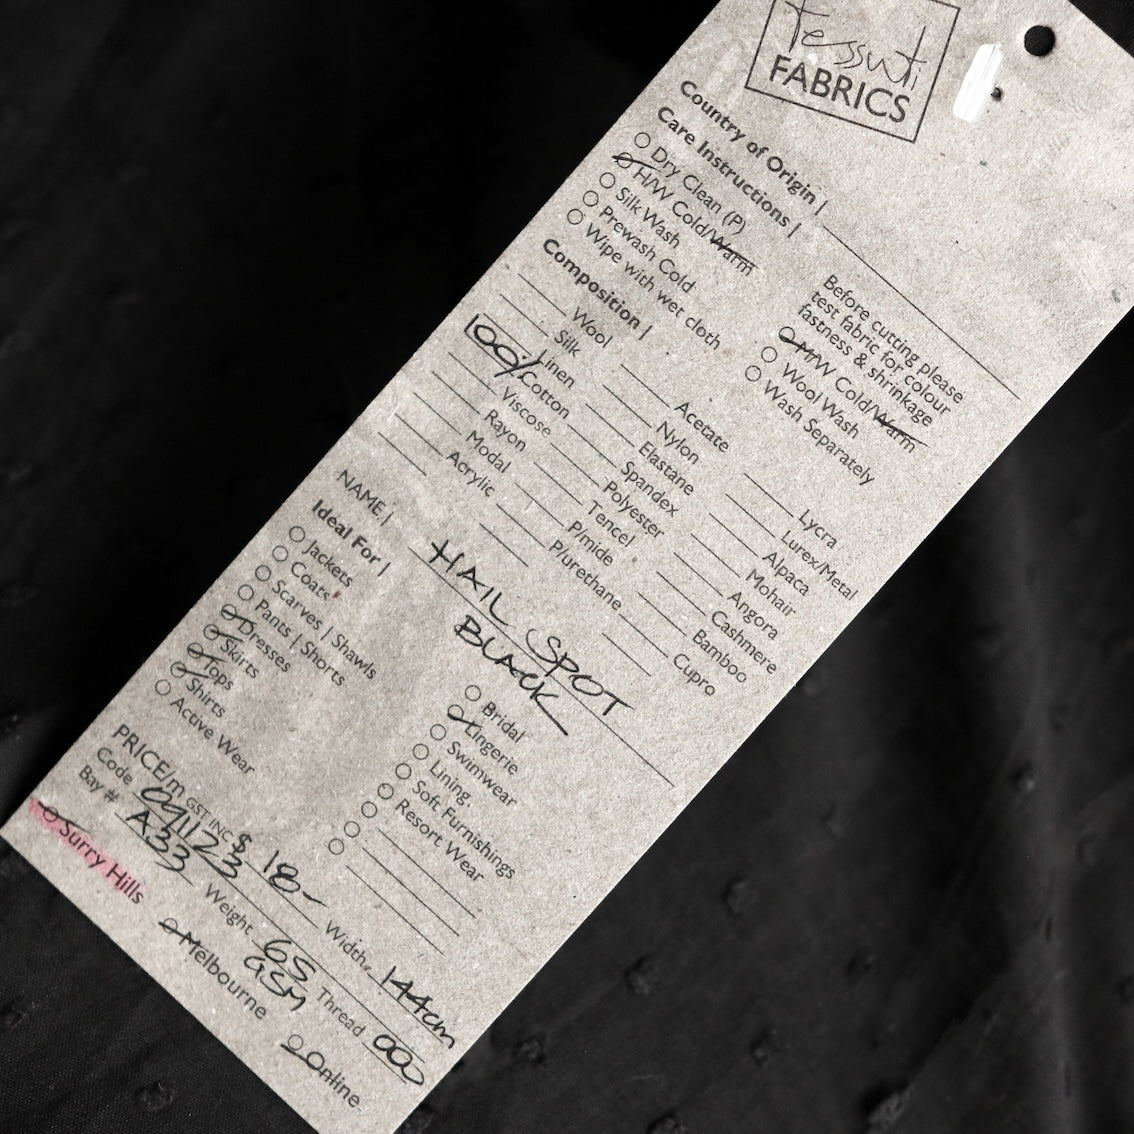 Tessuti
FABRICS
Country of Origin |
Care Instructions |
Dry Clean (P)
H/W Cold/Warm
Silk Wash
Prewash Cold
Wipe with wet cloth
Before cutting please
test fabric for colour
fastness & shrinkage
M/W Cold/Warm
Wool Wash
Wash Separately
Composition |
Wool
Silk
Linen
100% Cotton
Viscose
Rayon
Modal
Acrylic
Acetate
Nylon
Elastane
Spandex
Polyester
Tencel
P/mide
P/urethane
Lycra
Lurex/Metal
Alpaca
Mohair
Angora
Cashmere
Bamboo
Cupro
NAME | HAIL SPOT
BLACK
Ideal For |
Jackets
Coats
Scarves | Shawls
Pants | Shorts
Dresses
Skirts
Tops
Shirts
Active Wear
Bridal
Lingerie
Swimwear
Lining
Soft Furnishings
Resort Wear
PRICE/m GST INC $ 18-
Width 144cm
Code 091123
Weight 65 GSM
Thread 000
Bay # A33
Surry Hills
Melbourne
Online